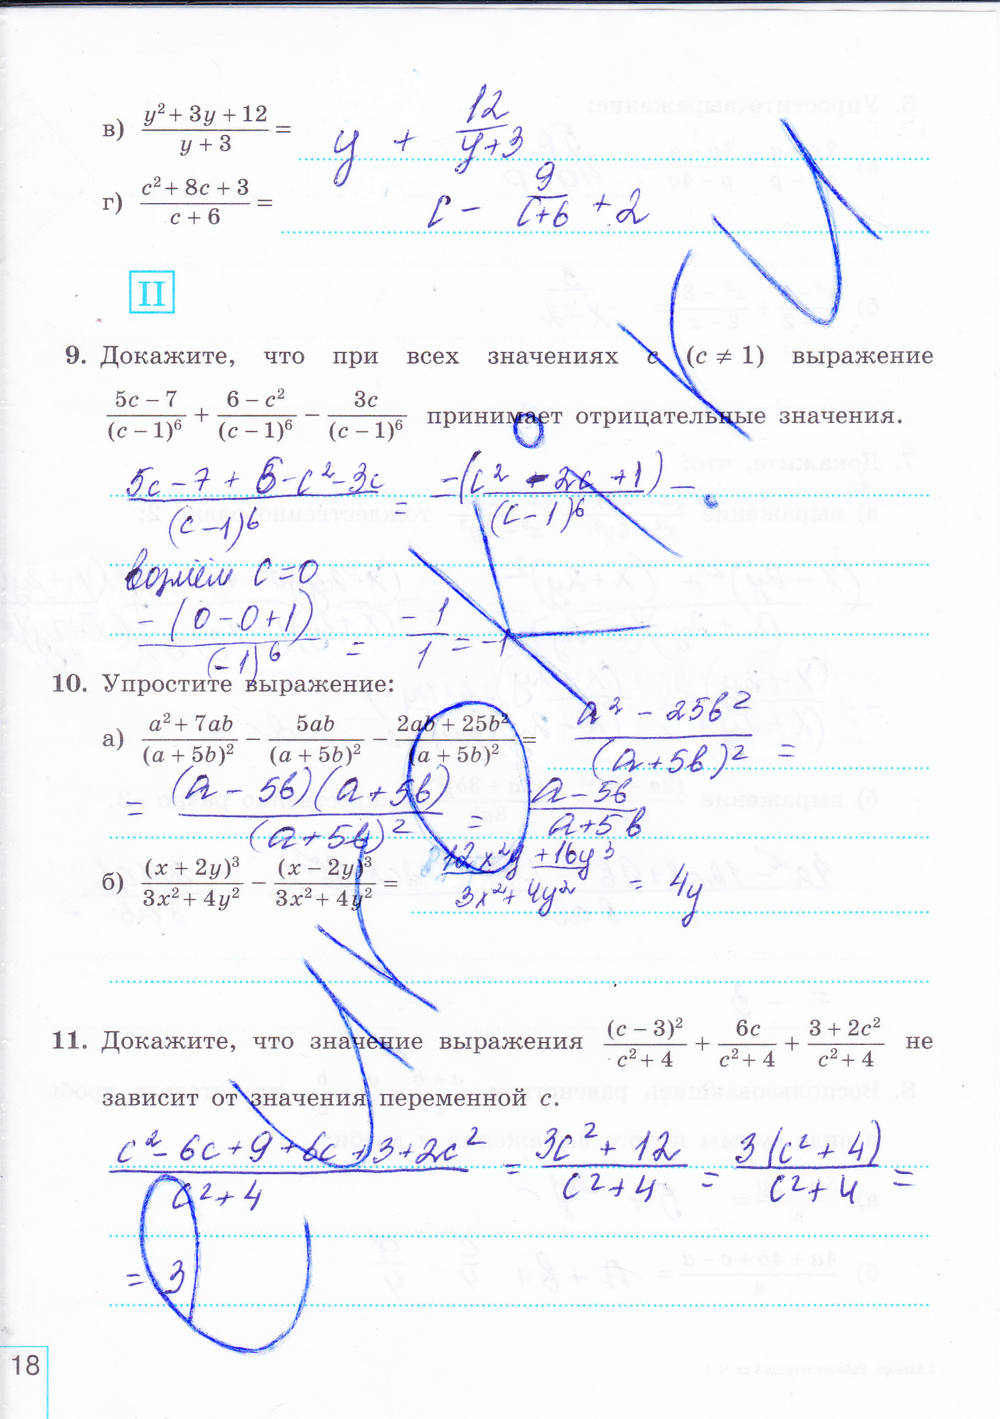 в) (y² + 3y + 12)/(y + 3) = y + 12/(y+3)
г) (c² + 8c + 3)/(c + 6) = c − 9/(c+6) + 2
II
9. Докажите, что при всех значениях c (c ≠ 1) выражение
(5c − 7)/(c − 1)⁶ + (6 − c²)/(c − 1)⁶ − 3c/(c − 1)⁶ принимает отрицательные значения.
(5c − 7 + 6 − c² − 3c)/(c−1)⁶ = −(c² − 2c + 1)/(c−1)⁶
возмём c=0
−(0−0+1)/(−1)⁶ = −1/1 = −1
10. Упростите выражение:
а) (a² + 7ab)/(a + 5b)² − 5ab/(a + 5b)² − (2ab + 25b²)/(a + 5b)² = (a² − 25b²)/(a+5b)² =
= (a − 5b)(a + 5b)/(a+5b)² = (a − 5b)/(a+5b)
б) (x + 2y)³/(3x² + 4y²) − (x − 2y)³/(3x² + 4y²) = (12x²y + 16y³)/(3x² + 4y²) = 4y
11. Докажите, что значение выражения (c − 3)²/(c² + 4) + 6c/(c² + 4) + (3 + 2c²)/(c² + 4) не
зависит от значения переменной c.
(c² − 6c + 9 + 6c + 3 + 2c²)/(c² + 4) = (3c² + 12)/(c² + 4) = 3(c² + 4)/(c² + 4) =
= 3
18